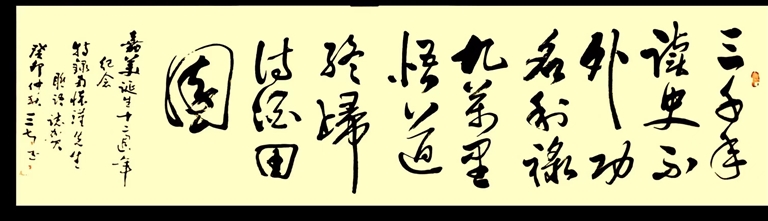 三千年
读史不
外功
名利禄
九萬里
悟道
终歸
诗酒田
園
嘉美诞生十二週年
纪念
特录南懷瑾先生
联语
癸卯仲秋